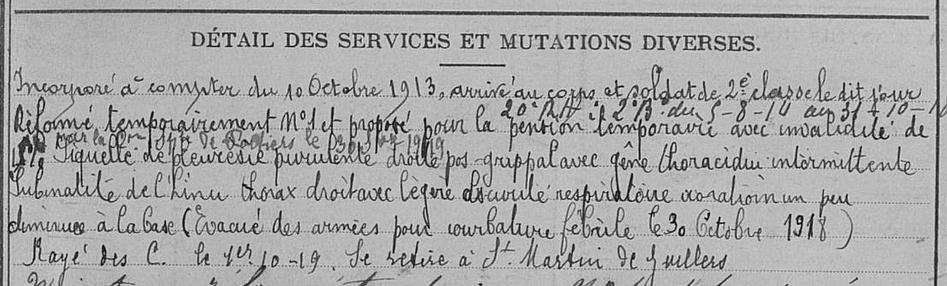 DÉTAIL DES SERVICES ET MUTATIONS DIVERSES.
Incorporé à compter du 10 Octobre 1913, arrivé au corps et soldat de 2e classe le dit jour
20e 2e du 5-8-14 au 31-10-1
Réformé temporairement No 1 et proposé pour la pension temporaire avec invalidité de
par la Con de Poitiers le 1919
Siquelle de pleurésie purulente droite pos-grippal avec gêne thoracidue intermittente
Submatité de l'hinu thorax droit avec légère obscurité respiratoire un peu
diminuée à la base (Evacué des armées pour courbature fébrile le 30 Octobre 1918)
Rayé des C. le 1er 10-19. Se retire à St Martin de